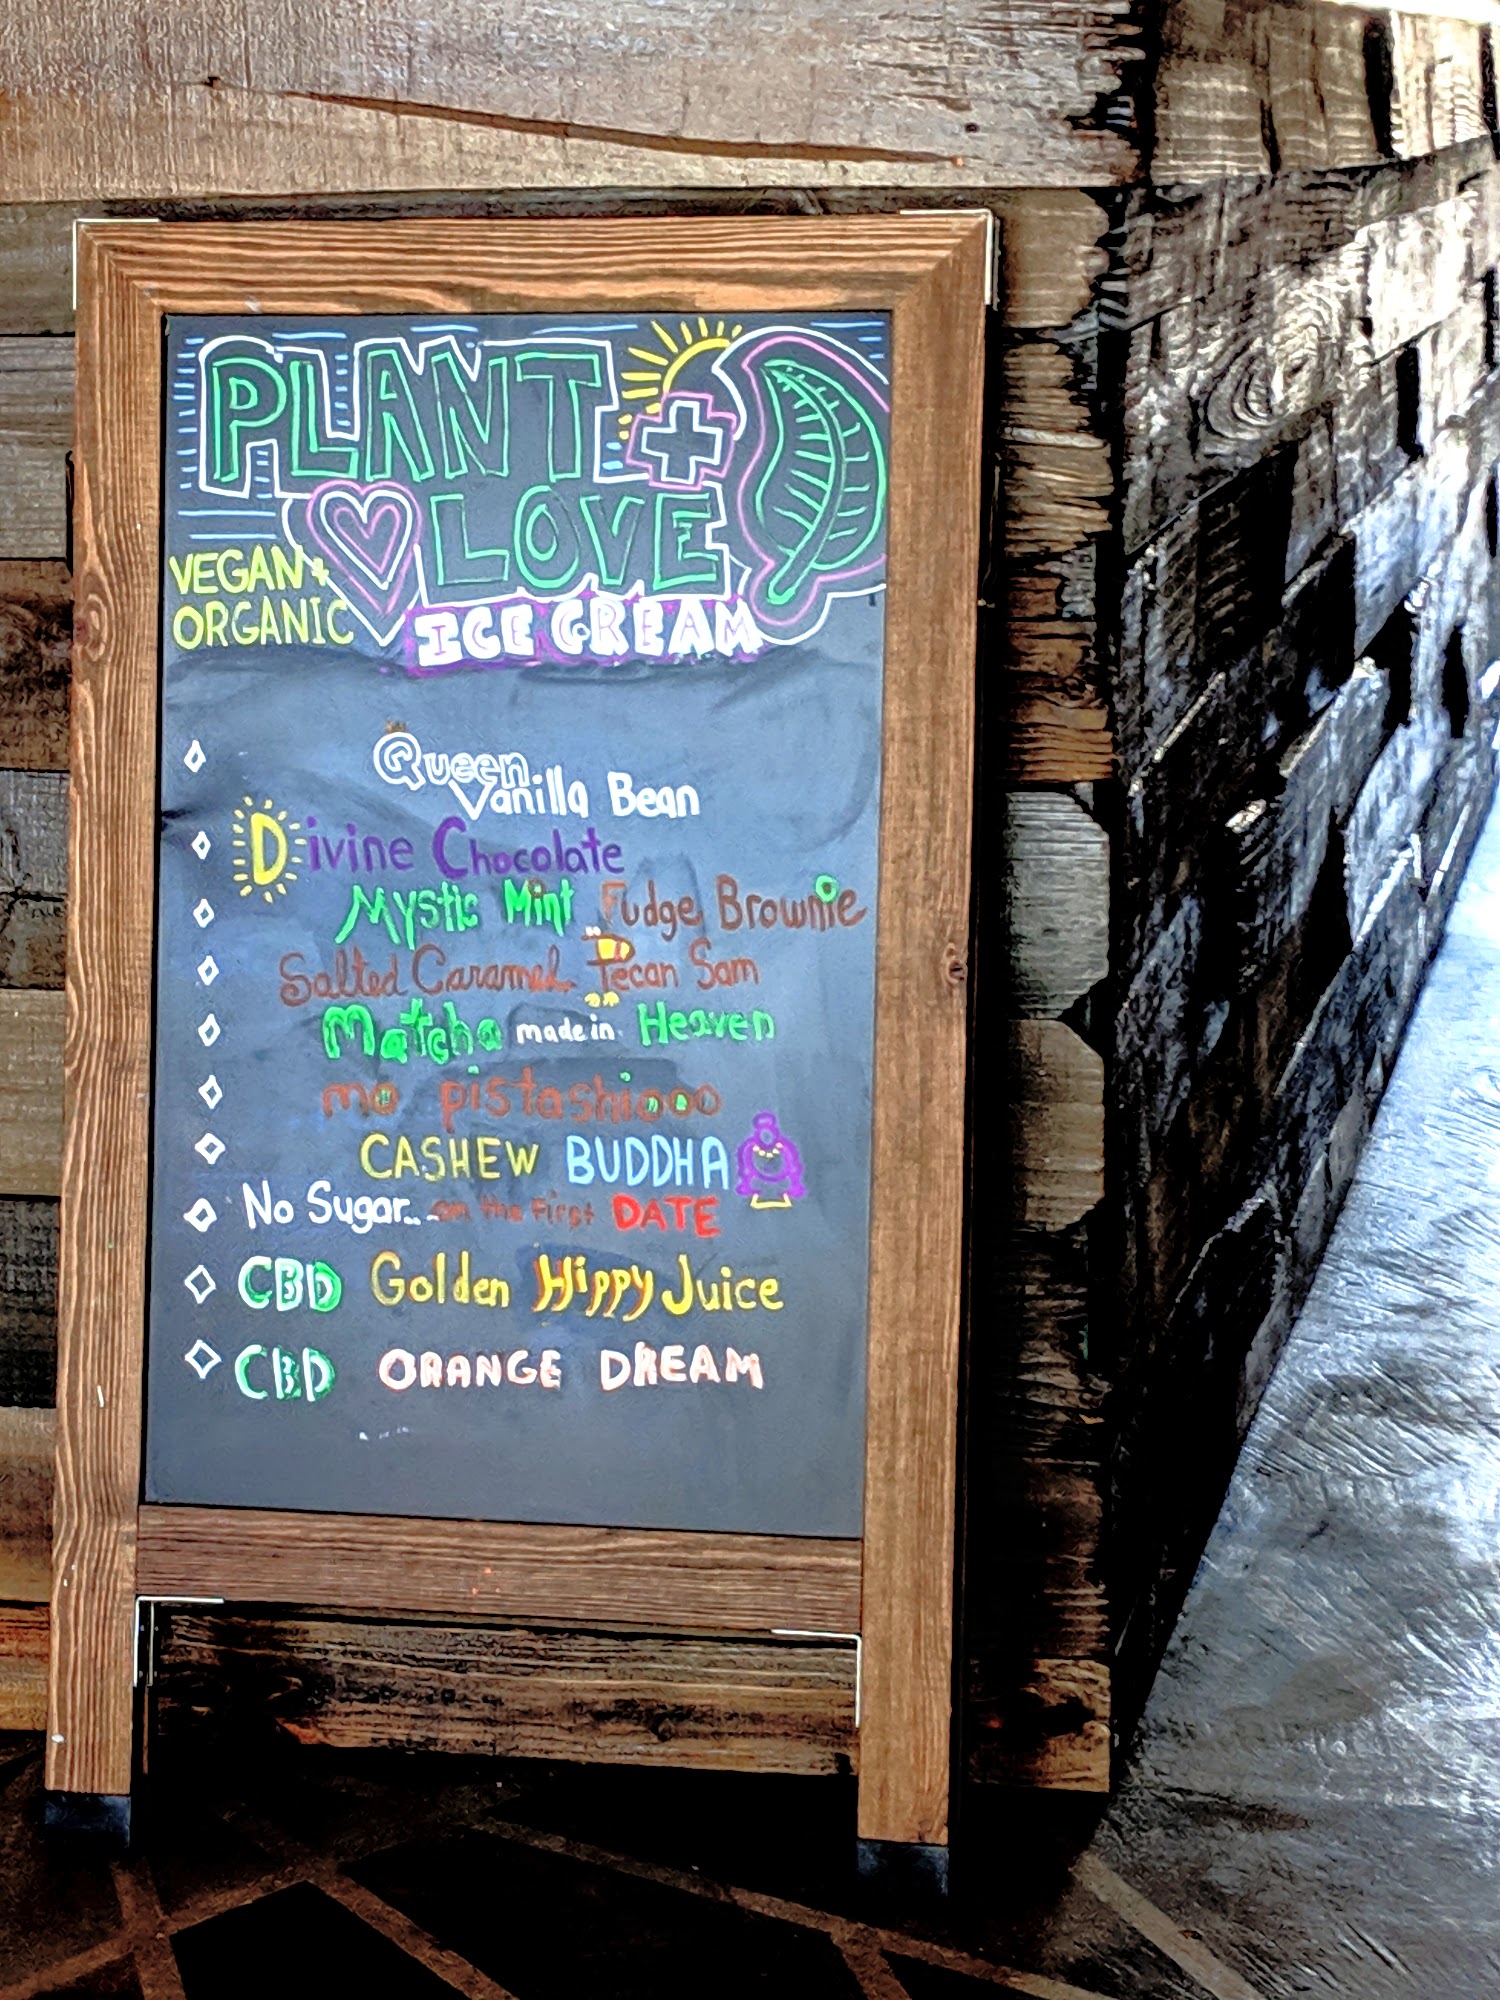 PLANT +
LOVE
VEGAN +
ORGANIC
ICE CREAM
Queen
Vanilla Bean
Divine Chocolate
Mystic Mint Fudge Brownie
Salted Caramel Pecan Sam
Matcha made in Heaven
mo pistashiooo
CASHEW BUDDHA
No Sugar... on the First DATE
CBD Golden Hippy Juice
CBD ORANGE DREAM